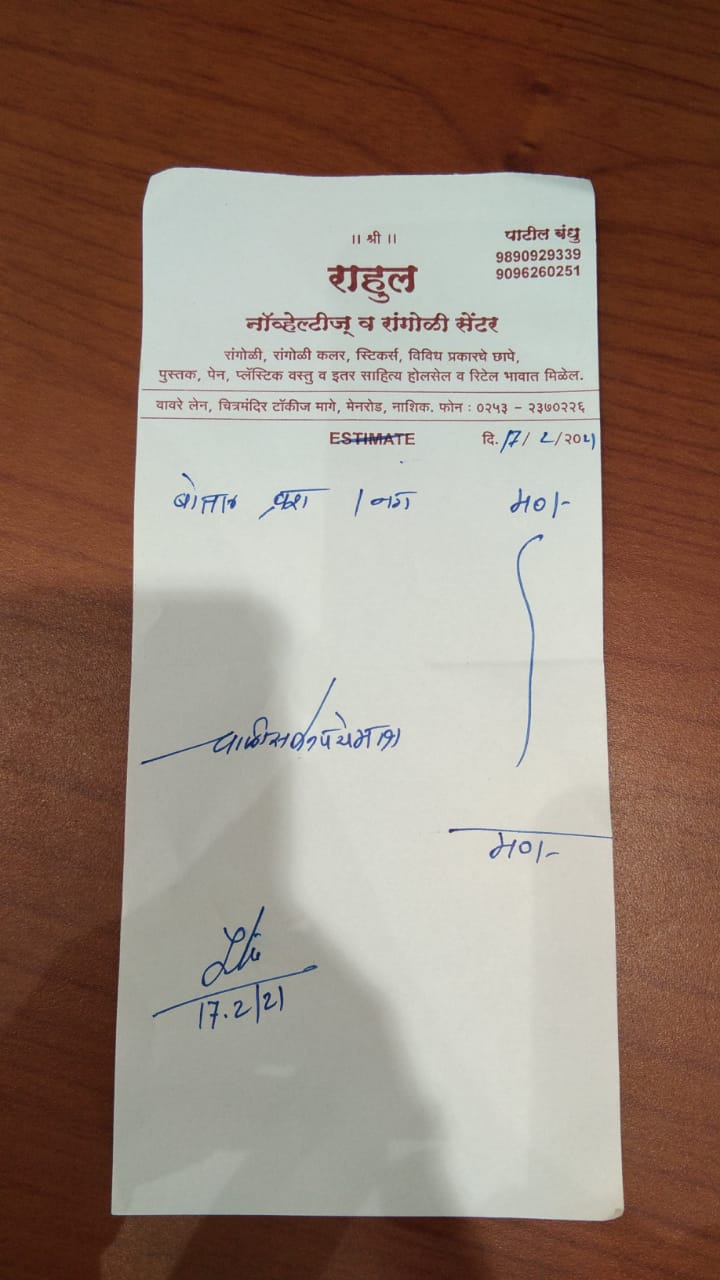 ॥ श्री ॥
पाटील बंधु
9890929339
9096260251
राहुल
नॉव्हेल्टीज् व रांगोळी सेंटर
रांगोळी, रांगोळी कलर, स्टिकर्स, विविध प्रकारचे छापे,
पुस्तक, पेन, प्लॅस्टिक वस्तु व इतर साहित्य होलसेल व रिटेल भावात मिळेल.
वावरे लेन, चित्रमंदिर टॉकीज मागे, मेनरोड, नाशिक. फोन : ०२५३ - २३७०२२६
ESTIMATE दि. 17/2/२०21
ब्रश 1 नग
17.2/21